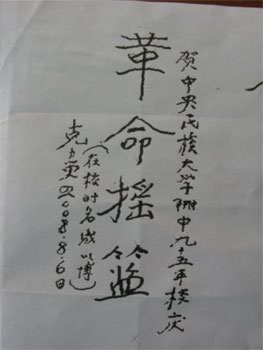 贺中央民族大学附中九十五年校庆
革命摇篮
(在校时名成以博)
克力更 2008.8.6日